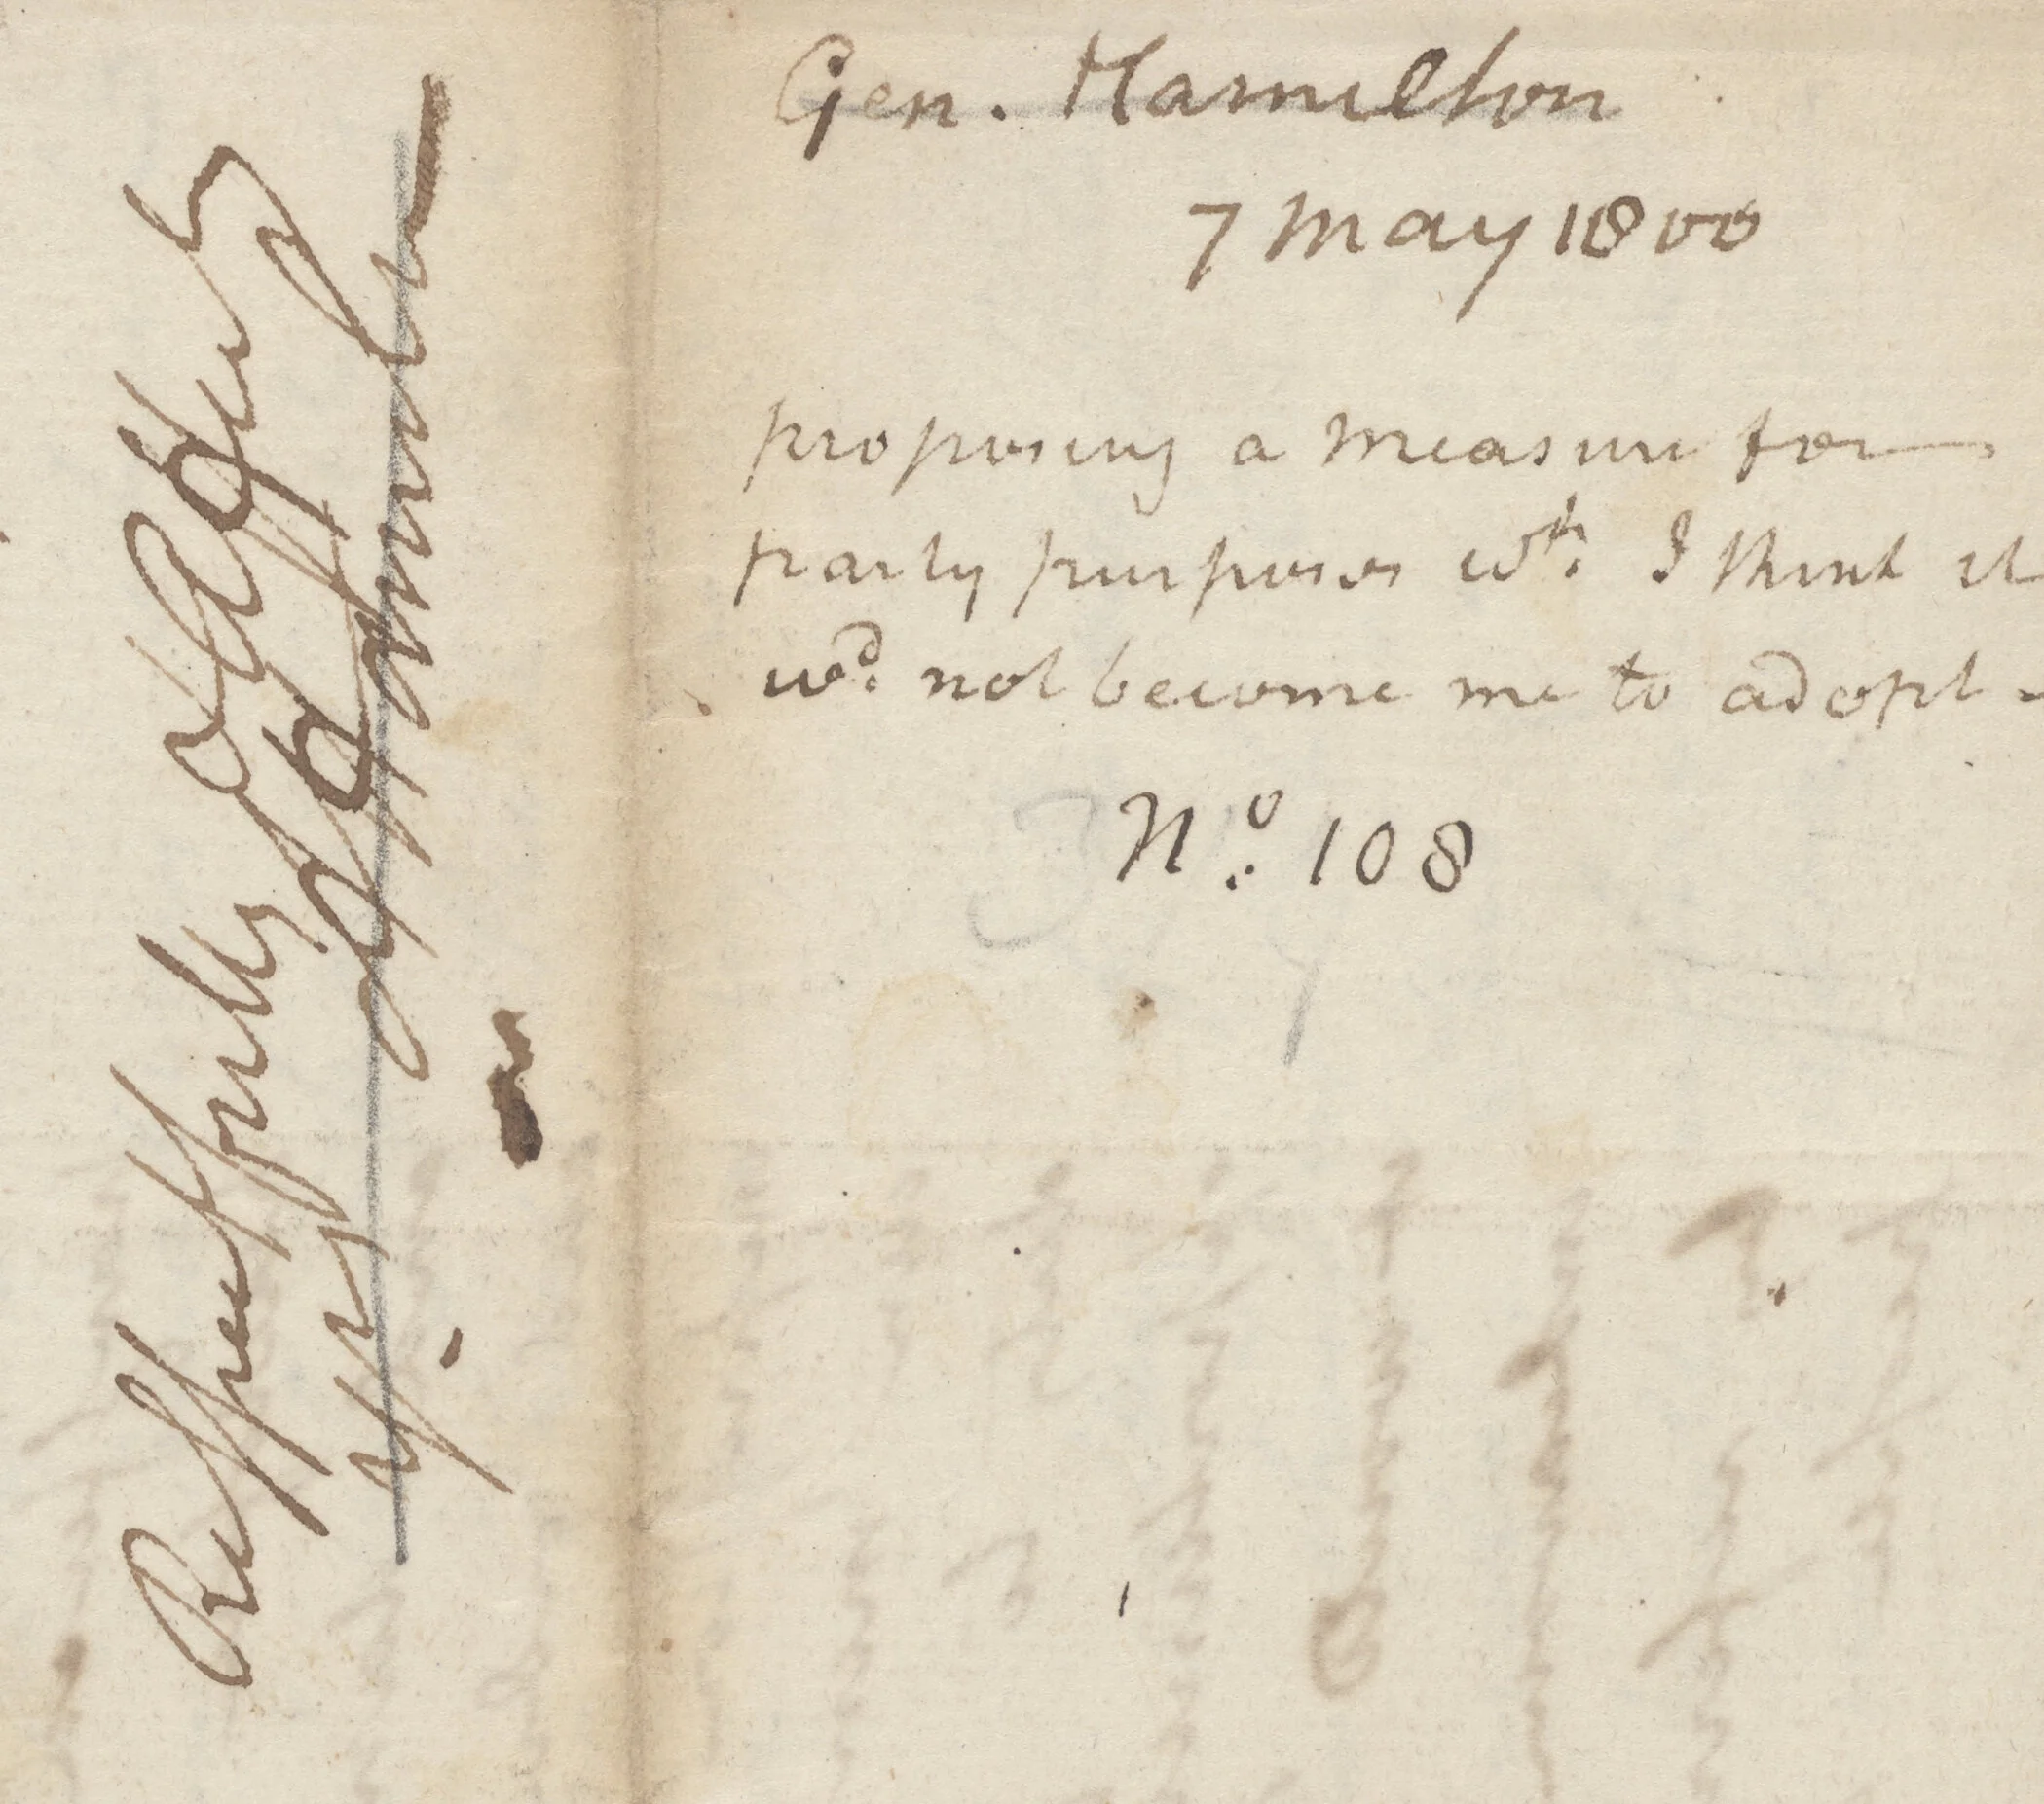 Gen. Hamilton
7 May 1800
proposing a measure for
party purposes wh. I think it
wd. not become me to adopt.
No. 108
Respectfully & Affecly
Yrs A Hamilton